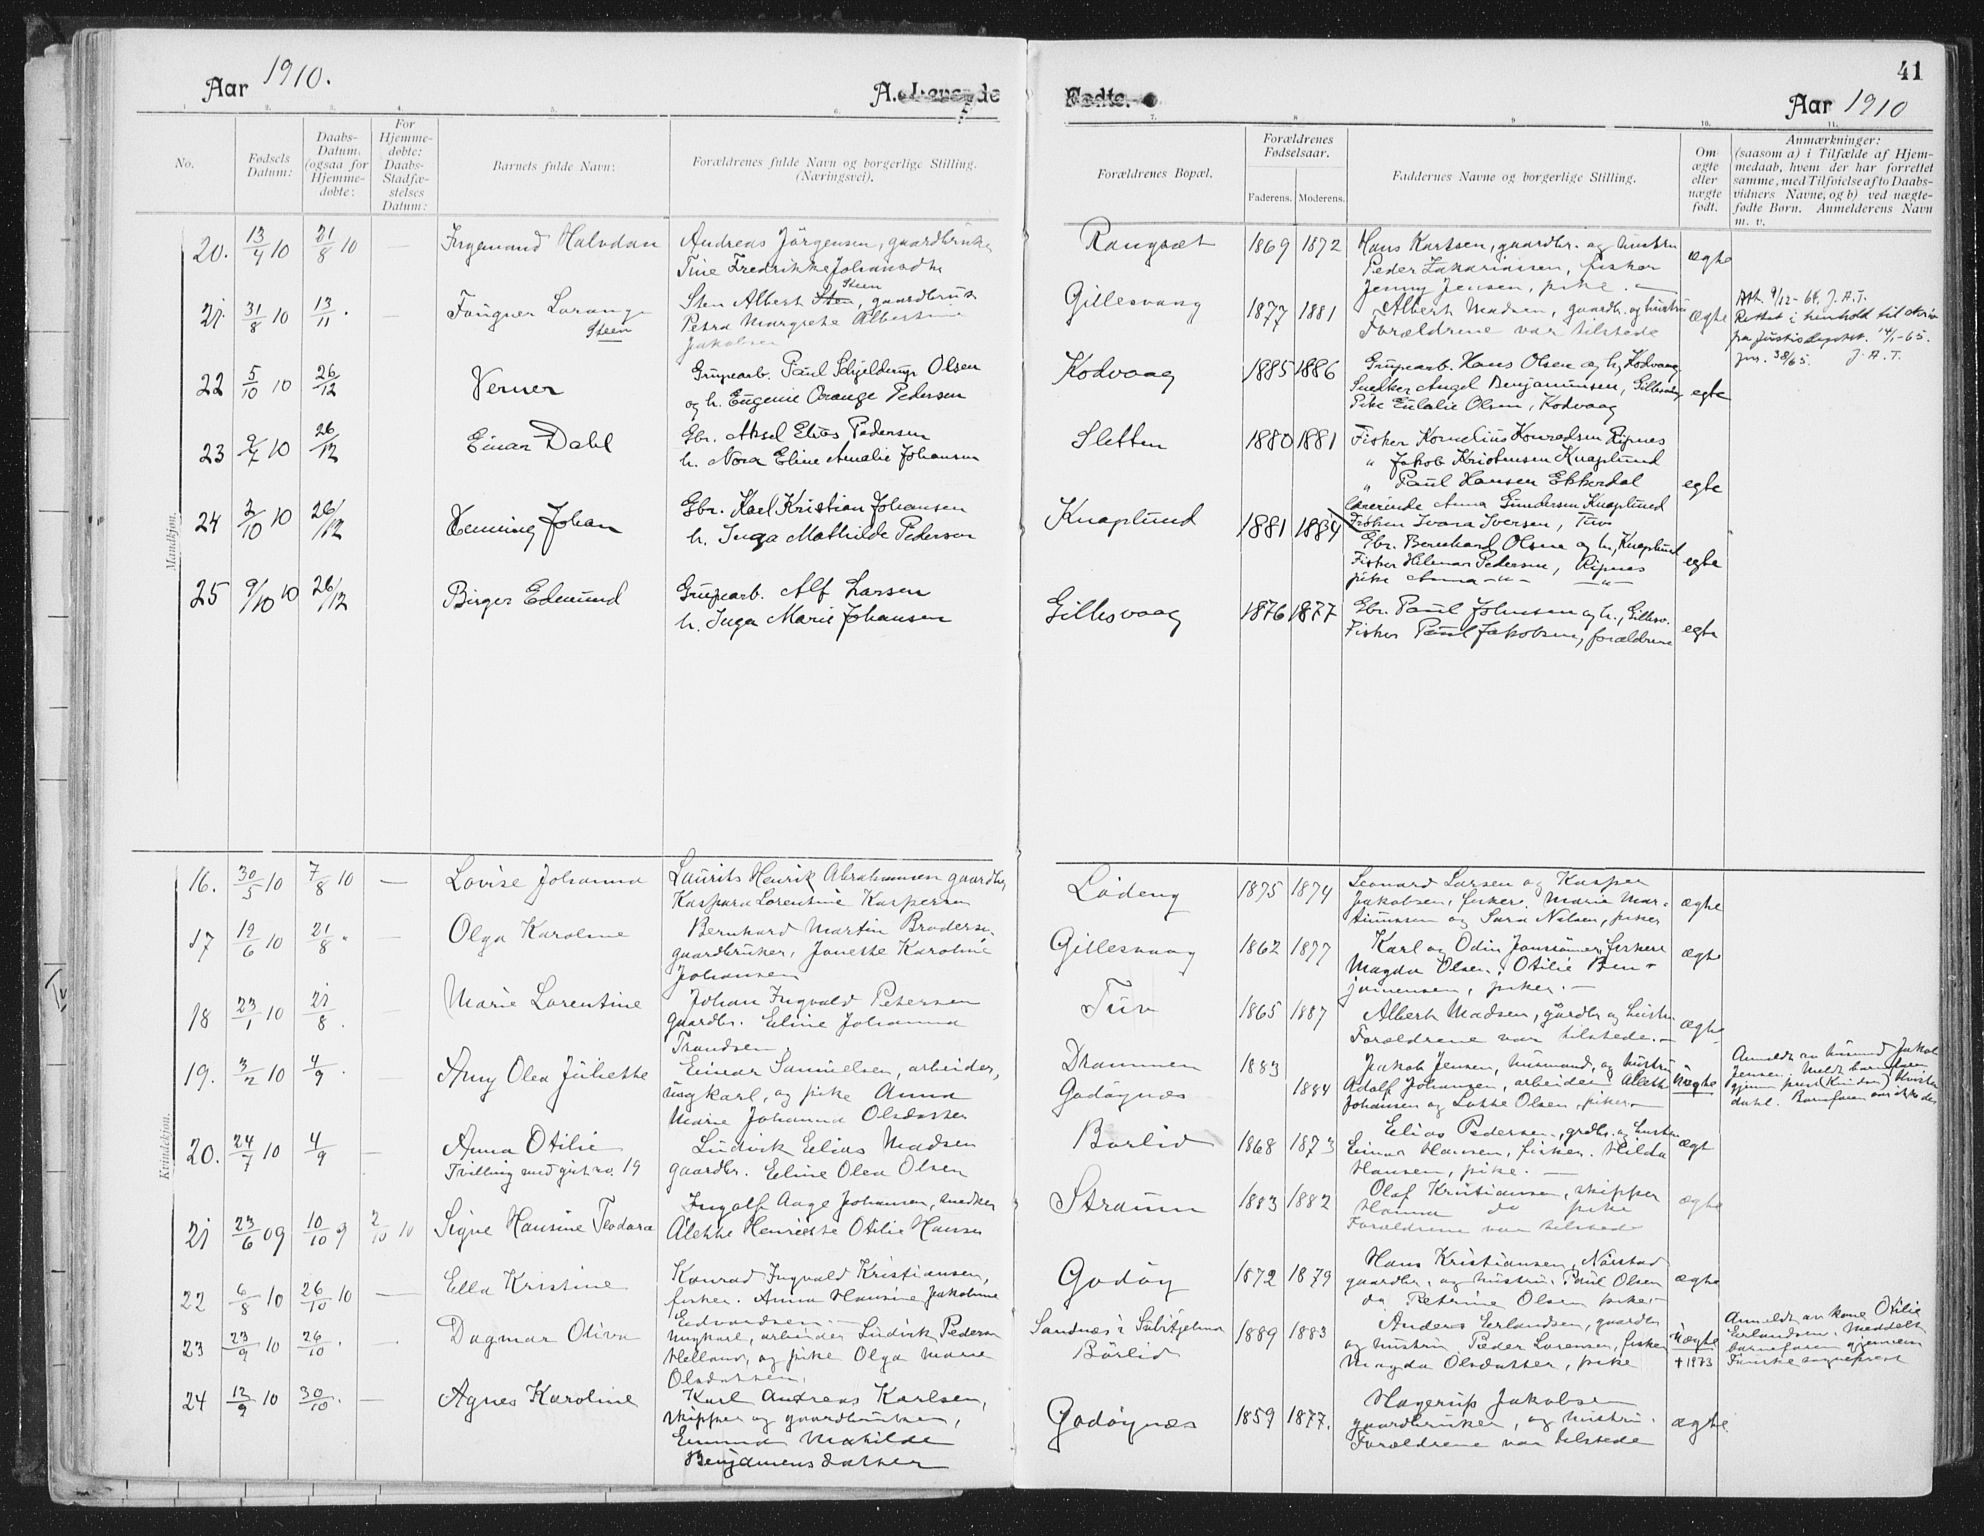 Aar 1910.
A. Levende
Fødte.
Aar 1910
41
1. 2. 3. 4. 5. 6. 7. 8. 9. 10. 11.
No.
Fødsels Datum:
Daabs-Datum. (ogsaa for Hjemme-døbte:
For Hjemme-døbte: Daabs-Stadfæ-stelses Datum:
Barnets fulde Navn:
Forældrenes fulde Navn og borgerlige Stilling. (Næringsvei).
Forældrenes Bopæl.
Forældrenes Fødselsaar.
Faderens. Moderens.
Faddernes Navne og borgerlige Stilling.
Om ægte eller uægte født.
Anmærkninger: (saasom a) i Tilfælde af Hjem-medaab, hvem der har forrettet samme, med Tilføielse af to Daabs-vidners Navne, og b) ved uægte-fødte Børn. Anmelderens Navn m. v.
Mandkjøn.
20. 13/4 10 21/8 10 — Ingemand Halvdan
Andreas Jörgensen, gaardbruker
Tine Fredrikke Johansdtr
Rangsæt 1869 1872
Hans Karlsen, gaardbr. og hustru
Peder Zakariassen, fisker
Jenny Jensen, pike. —
ægte
21. 31/8 10 13/11 . — Fougner Lorang
Steen
Sten Albert Sten, gaardbruk
Steen
Petra Margrete Albertine
Jakobsen
Gillesvaag 1877 1881
Albert Madsen, gaardbr. og hustru
Forældrene var tilstede
ægte
Att. 9/12-64. J.A.T.
Rettet i henhold til skriv
fra Justisdepartet. 14/1-65.
Jnr. 38/65. J.A.T.
22 5/10 10 26/12 Verner
Grupearb. Paul Schjelderup Olsen
og h. Eugenie Orange Pedersen
Kodvaag 1885 1886
Grupearb. Hans Olsen og h., Kodvaag
Snekker Angel Benjaminsen, Gillesvaag
Pike Eulalie Olsen, Kodvaag
egte
23 9/7 10 26/12 Einar Dahl
Gbr. Aksel Elias Pedersen
h. Nora Eline Amalie Johansen
Sletten 1880 1881
Fisker Kornelius Konradsen Ripnes
" Jakob Kristensen Knaplund
" Paul Hansen Ekkerdal
Lærerinde Anna Gundersen Knaplund
Frøken Ivara Iversen, Tuv
egte
24 2/10 10 26/12 Henning Johan
Gbr. Karl Kristian Johansen
h. Inga Mathilde Pedersen
Knaplund 1881 1884
Gbr. Bernhard Olsen og h., Knaplund
Fisker Hilmar Pedersen, Ripnes
pike Anna —"— —"—
egte
25 9/10 10 26/12 Birger Edmund
Grupearb. Alf Larsen
h. Inga Marie Johansen
Gillesvaag 1876 1877
Gbr. Paul Johnsen og h., Gillesv.
Fisker Paul Jakobsen, forældrene
egte
Kvindekjøn.
16. 30/5 10 7/8 10 — Lovise Johanna
Laurits Henrik Abrahamsen gaardbr,
Kaspara Lorentine Kaspersen
Lödeng 1875 1874
Leonard Larsen og Kasper
Jakobsen, fiskere. Marie Mar-
tinussen og Sara Nilsen, piker
ægte
17 12/6 10 21/8 . — Olga Karoline
Bernhard Martin Brodersen
gaardbruker, Janette Karoline
Johansen
Gillesvaag 1862 1877
Karl og Odin , fiskere
Magda Olsen, Otilie Ben-
jamensen, piker. —
ægte
18 23/1 10 21/8 . — Marie Lorentine
Johan Ingvald Petersen
gaardbr. Eline Johanna
Trondsen
Tuv 1865 1887
Albert Madsen, gårdbr og hustru
Forældrene var tilstede. —
ægte
19. 3/2 10 4/9 . — Amy Olea Juliette
Einar Samuelsen, arbeider,
ungkarl, og pike Anna
Marie Johanna Olsdatter
Drammen
Godöynæs
1883
1884
Jakob Jensen, husmand, og hustru
Adolf Johansen, arbeider. Alette
Johansen og Lotte Olsen, piker. —
uægte
Anmeldt av husmand Jakob
Jensen. Meldt barnefaren
gjennem prest
20. 24/7 10 4/9 — Anna Otilie
Tvilling med gut no. 19
Ludvik Elias Madsen
gaardbr. Eline Olea Olsen
Börlid 1868 1873
Elias Pedersen, grdbr. og hustru
Einar Hansen, fisker. Hilda
Hansen, pike. —
ægt
21 23/6 09 10/10 9 2/10 10 Signe Hansine Teodora
Ingolf Aage Johansen, snedker
Alette Henriette Otilie Hansen
Straum 1883 1882
Olaf Kristiansen, skipper
Hanna do pike
Forældrene var tilstede
ægte
22 6/8 10 26/10 10 — Ella Kristine
Konrad Ingvald Kristiansen,
fisker. Anna Hansine Jakobine
Edvardsen. —
Godöy 1872 1879
Hans Kristiansen, Naistad
gaardbr. og hustru. Paul Olsen
do Petrine Olsen pike —
ægte
23 23/9 10 26/10 . — Dagmar Oliva
Ungkarl, arbeider Ludvik Pedersen
Helland, og pike Olga Marie
Olsdatter.
Sandnæs i Sulitjelma
Börlid
1889 1883
Anders Erlandsen, gaardbr
og hustru. Peder Larensen, fisker
Magda Olsdatter, pike
uægte
+ 1973
Anmeldt av kone Otilie
Erlandsen. Meddelt
barnefaren gjennem
Finske sogneprest
24 12/9 10 30/10 . — Agnes Karoline
Karl Andreas Karlsen,
skipper og gaardbruker,
Emma Matilde
Benjamensdatter
Godöynæs 1859 1877.
Hagerup Jakobsen
gaardbruker, og hustru.
Forældrene var tilstede
ægte